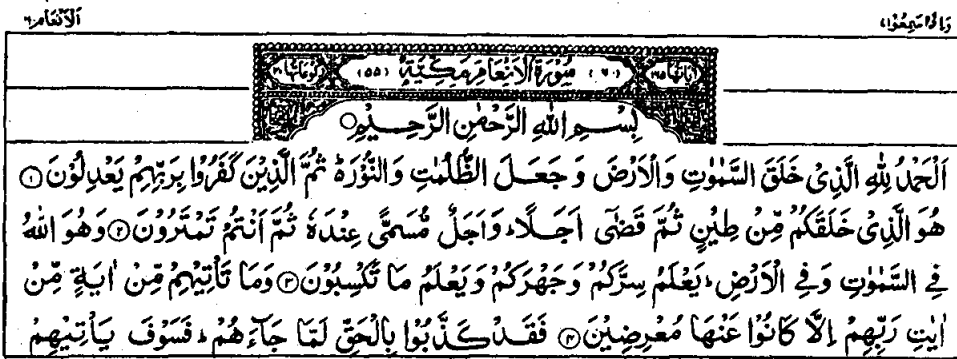 وَاِذَا سَمِعُوْا ۷
الۡاَنۡعَام ۶
اٰیَاتُهَا ۱۶۵ (۶) سُوۡرَةُ الۡاَنۡعَامِ مَکِّیَّةٌ (۵۵) رُکُوۡعَاتُهَا ۲۰
بِسۡمِ اللهِ الرَّحۡمٰنِ الرَّحِیۡمِ
اَلۡحَمۡدُ لِلّٰهِ الَّذِیۡ خَلَقَ السَّمٰوٰتِ وَالۡاَرۡضَ وَ جَعَلَ الظُّلُمٰتِ وَالنُّوۡرَ ؕ ثُمَّ الَّذِیۡنَ کَفَرُوۡا بِرَبِّهِمۡ یَعۡدِلُوۡنَ ۱
هُوَ الَّذِیۡ خَلَقَکُمۡ مِّنۡ طِیۡنٍ ثُمَّ قَضٰۤی اَجَلًا ؕ وَاَجَلٌ مُّسَمًّی عِنۡدَهٗ ثُمَّ اَنۡتُمۡ تَمۡتَرُوۡنَ ۲ وَهُوَ اللهُ
فِی السَّمٰوٰتِ وَفِی الۡاَرۡضِ ؕ یَعۡلَمُ سِرَّکُمۡ وَجَهۡرَکُمۡ وَیَعۡلَمُ مَا تَکۡسِبُوۡنَ ۳ وَمَا تَاۡتِیۡهِمۡ مِّنۡ اٰیَةٍ مِّنۡ
اٰیٰتِ رَبِّهِمۡ اِلَّا کَانُوۡا عَنۡهَا مُعۡرِضِیۡنَ ۴ فَقَدۡ کَذَّبُوۡا بِالۡحَقِّ لَمَّا جَآءَهُمۡ ؕ فَسَوۡفَ یَاۡتِیۡهِمۡ